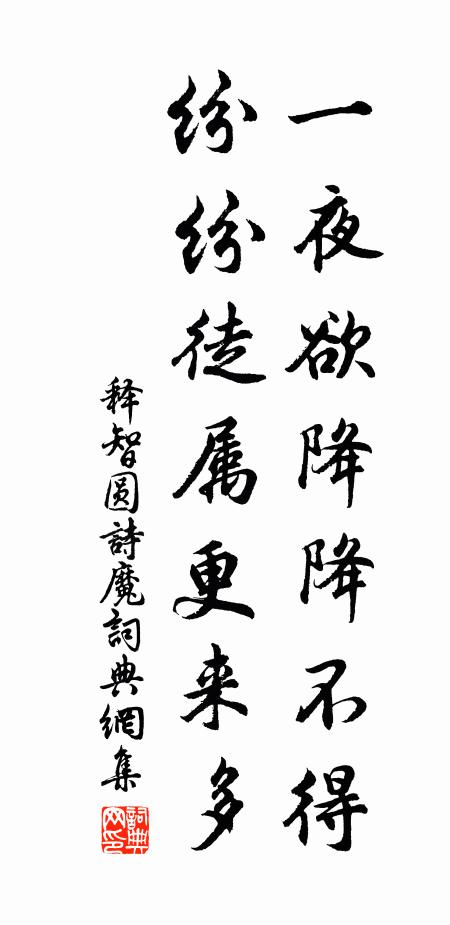 一夜欲降降不得
纷纷徒属更来多
释智圆詩魔詞典網集
詞典
网印